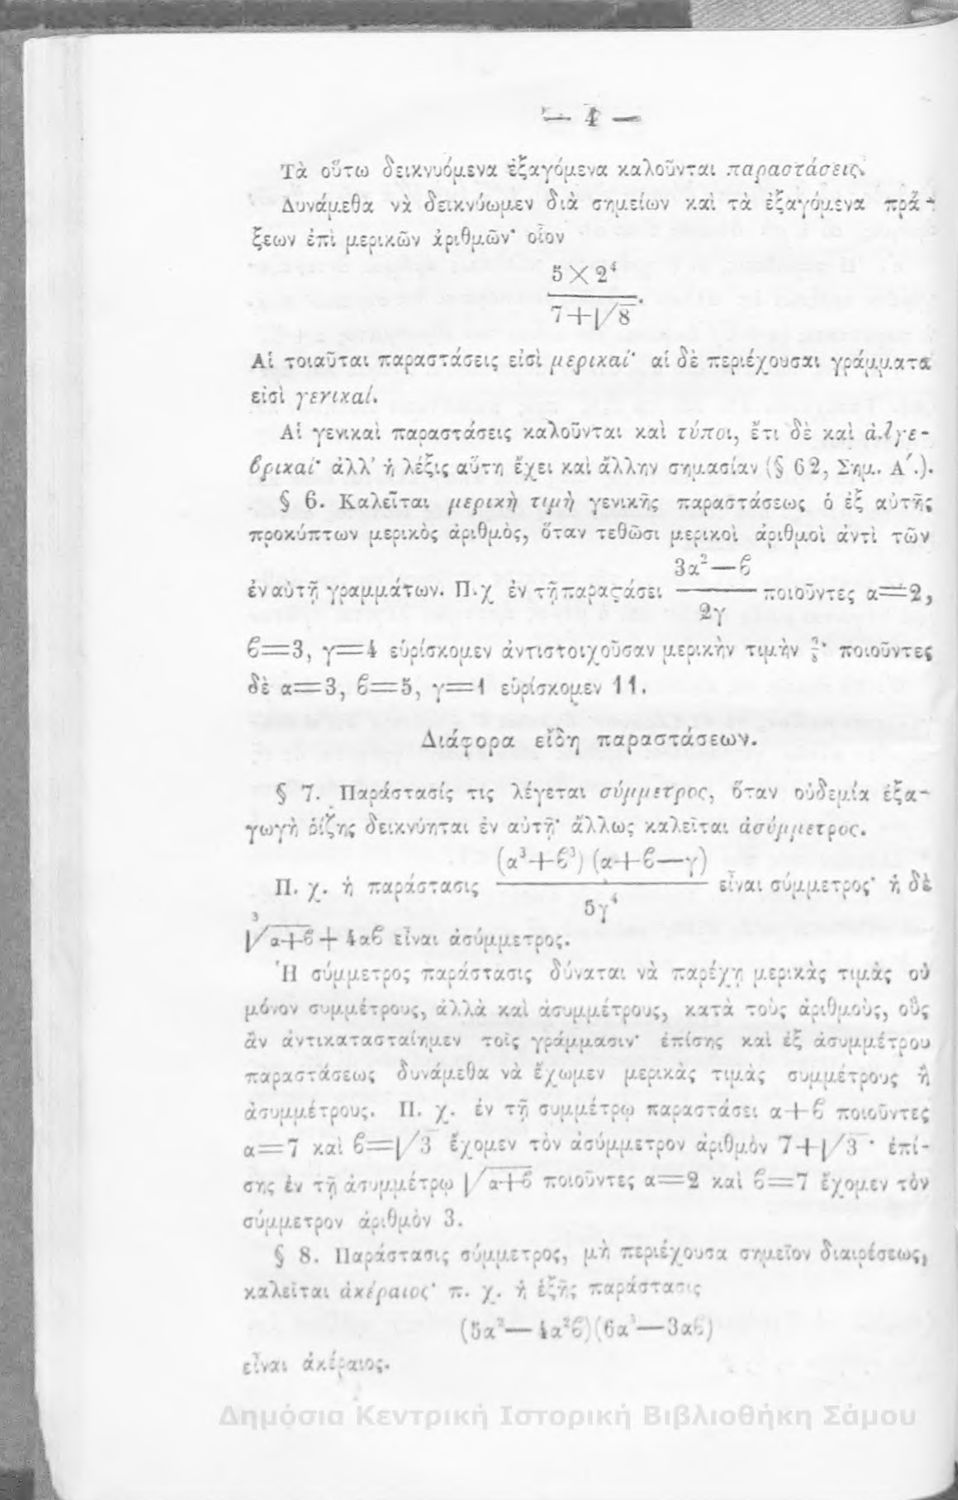 — 4 —
Τὰ οὕτω δεικνυόμενα ἐξαγόμενα καλοῦνται παραστάσεις.
Δυνάμεθα νὰ δεικνύωμεν διὰ σημείων καὶ τὰ ἐξαγόμενα πρά-
ξεων ἐπὶ μερικῶν ἀριθμῶν· οἷον
5×2⁴
7+√8 .
Αἱ τοιαῦται παραστάσεις εἰσὶ μερικαί· αἱ δὲ περιέχουσαι γράμματα
εἰσὶ γενικαί.
Αἱ γενικαὶ παραστάσεις καλοῦνται καὶ τύποι, ἔτι δὲ καὶ ἀλγε-
βρικαί· ἀλλ' ἡ λέξις αὕτη ἔχει καὶ ἄλλην σημασίαν (§ 62, Σημ. Α΄.).
§ 6. Καλεῖται μερικὴ τιμὴ γενικῆς παραστάσεως ὁ ἐξ αὐτῆς
προκύπτων μερικὸς ἀριθμὸς, ὅταν τεθῶσι μερικοὶ ἀριθμοὶ ἀντὶ τῶν
3α²—ϐ
ἐν αὐτῇ γραμμάτων. Π.χ ἐν τῇ παραςάσει ποιοῦντες α=2,
2γ
ϐ=3, γ=4 εὑρίσκομεν ἀντιστοιχοῦσαν μερικὴν τιμὴν · ποιοῦντες
δὲ α=3, ϐ=5, γ=1 εὑρίσκομεν 11.
Διάφορα εἴδη παραστάσεων.
§ 7. Παράστασίς τις λέγεται σύμμετρος, ὅταν οὐδεμία ἐξα-
γωγὴ ῥίζης δεικνύηται ἐν αὐτῇ· ἄλλως καλεῖται ἀσύμμετρος.
(α³+ϐ³) (α+ϐ—γ)
Π. χ. ἡ παράστασις εἶναι σύμμετρος· ἡ δὲ
5γ⁴
³√α+ϐ + 4αϐ εἶναι ἀσύμμετρος.
Ἡ σύμμετρος παράστασις δύναται νὰ παρέχῃ μερικὰς τιμὰς οὐ
μόνον συμμέτρους, ἀλλὰ καὶ ἀσυμμέτρους, κατὰ τοὺς ἀριθμοὺς, οὓς
ἂν ἀντικατασταίημεν τοῖς γράμμασιν· ἐπίσης καὶ ἐξ ἀσυμμέτρου
παραστάσεως δυνάμεθα νὰ ἔχωμεν μερικὰς τιμὰς συμμέτρους ἢ
ἀσυμμέτρους. Π. χ. ἐν τῇ συμμέτρῳ παραστάσει α+ϐ ποιοῦντες
α=7 καὶ ϐ=√3 ἔχομεν τὸν ἀσύμμετρον ἀριθμὸν 7+√3 · ἐπί-
σης ἐν τῇ ἀσυμμέτρῳ √α+ϐ ποιοῦντες α=2 καὶ ϐ=7 ἔχομεν τὸν
σύμμετρον ἀριθμὸν 3.
§ 8. Παράστασις σύμμετρος, μὴ περιέχουσα σημεῖον διαιρέσεως,
καλεῖται ἀκέραιος· π. χ. ἡ ἑξῆς παράστασις
(5α²—4α²ϐ)(6α³—3αϐ)
εἶναι ἀκέραιος.
Δημόσια Κεντρική Ιστορική Βιβλιοθήκη Σάμου